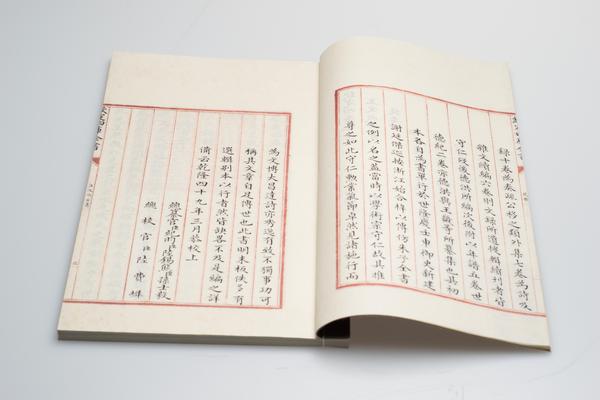 錄十卷為奏疏公移之類外集七卷為詩及
雜文續編六卷則文錄所遺搜輯續刊者皆
守仁歿後德洪所編次後附以年譜五卷世
德紀二卷亦德洪與王畿等所纂集也其初
本各自為書單行於世隆慶壬申御史新建
謝廷傑巡按浙江始合梓以傳仿朱子全書
之例以名之蓋當時以學術宗守仁故其推
尊之如此守仁勲業氣節卓然見諸施行而
為文博大昌達詩亦秀逸有致不獨事功可
稱其文章自足傳世也此書明末板佚多有
選輯別本以行者然皆缺畧不及是編之詳
備云乾隆四十九年三月恭校上
總纂官臣紀昀臣陸錫熊臣孫士毅
總校官臣陸費墀